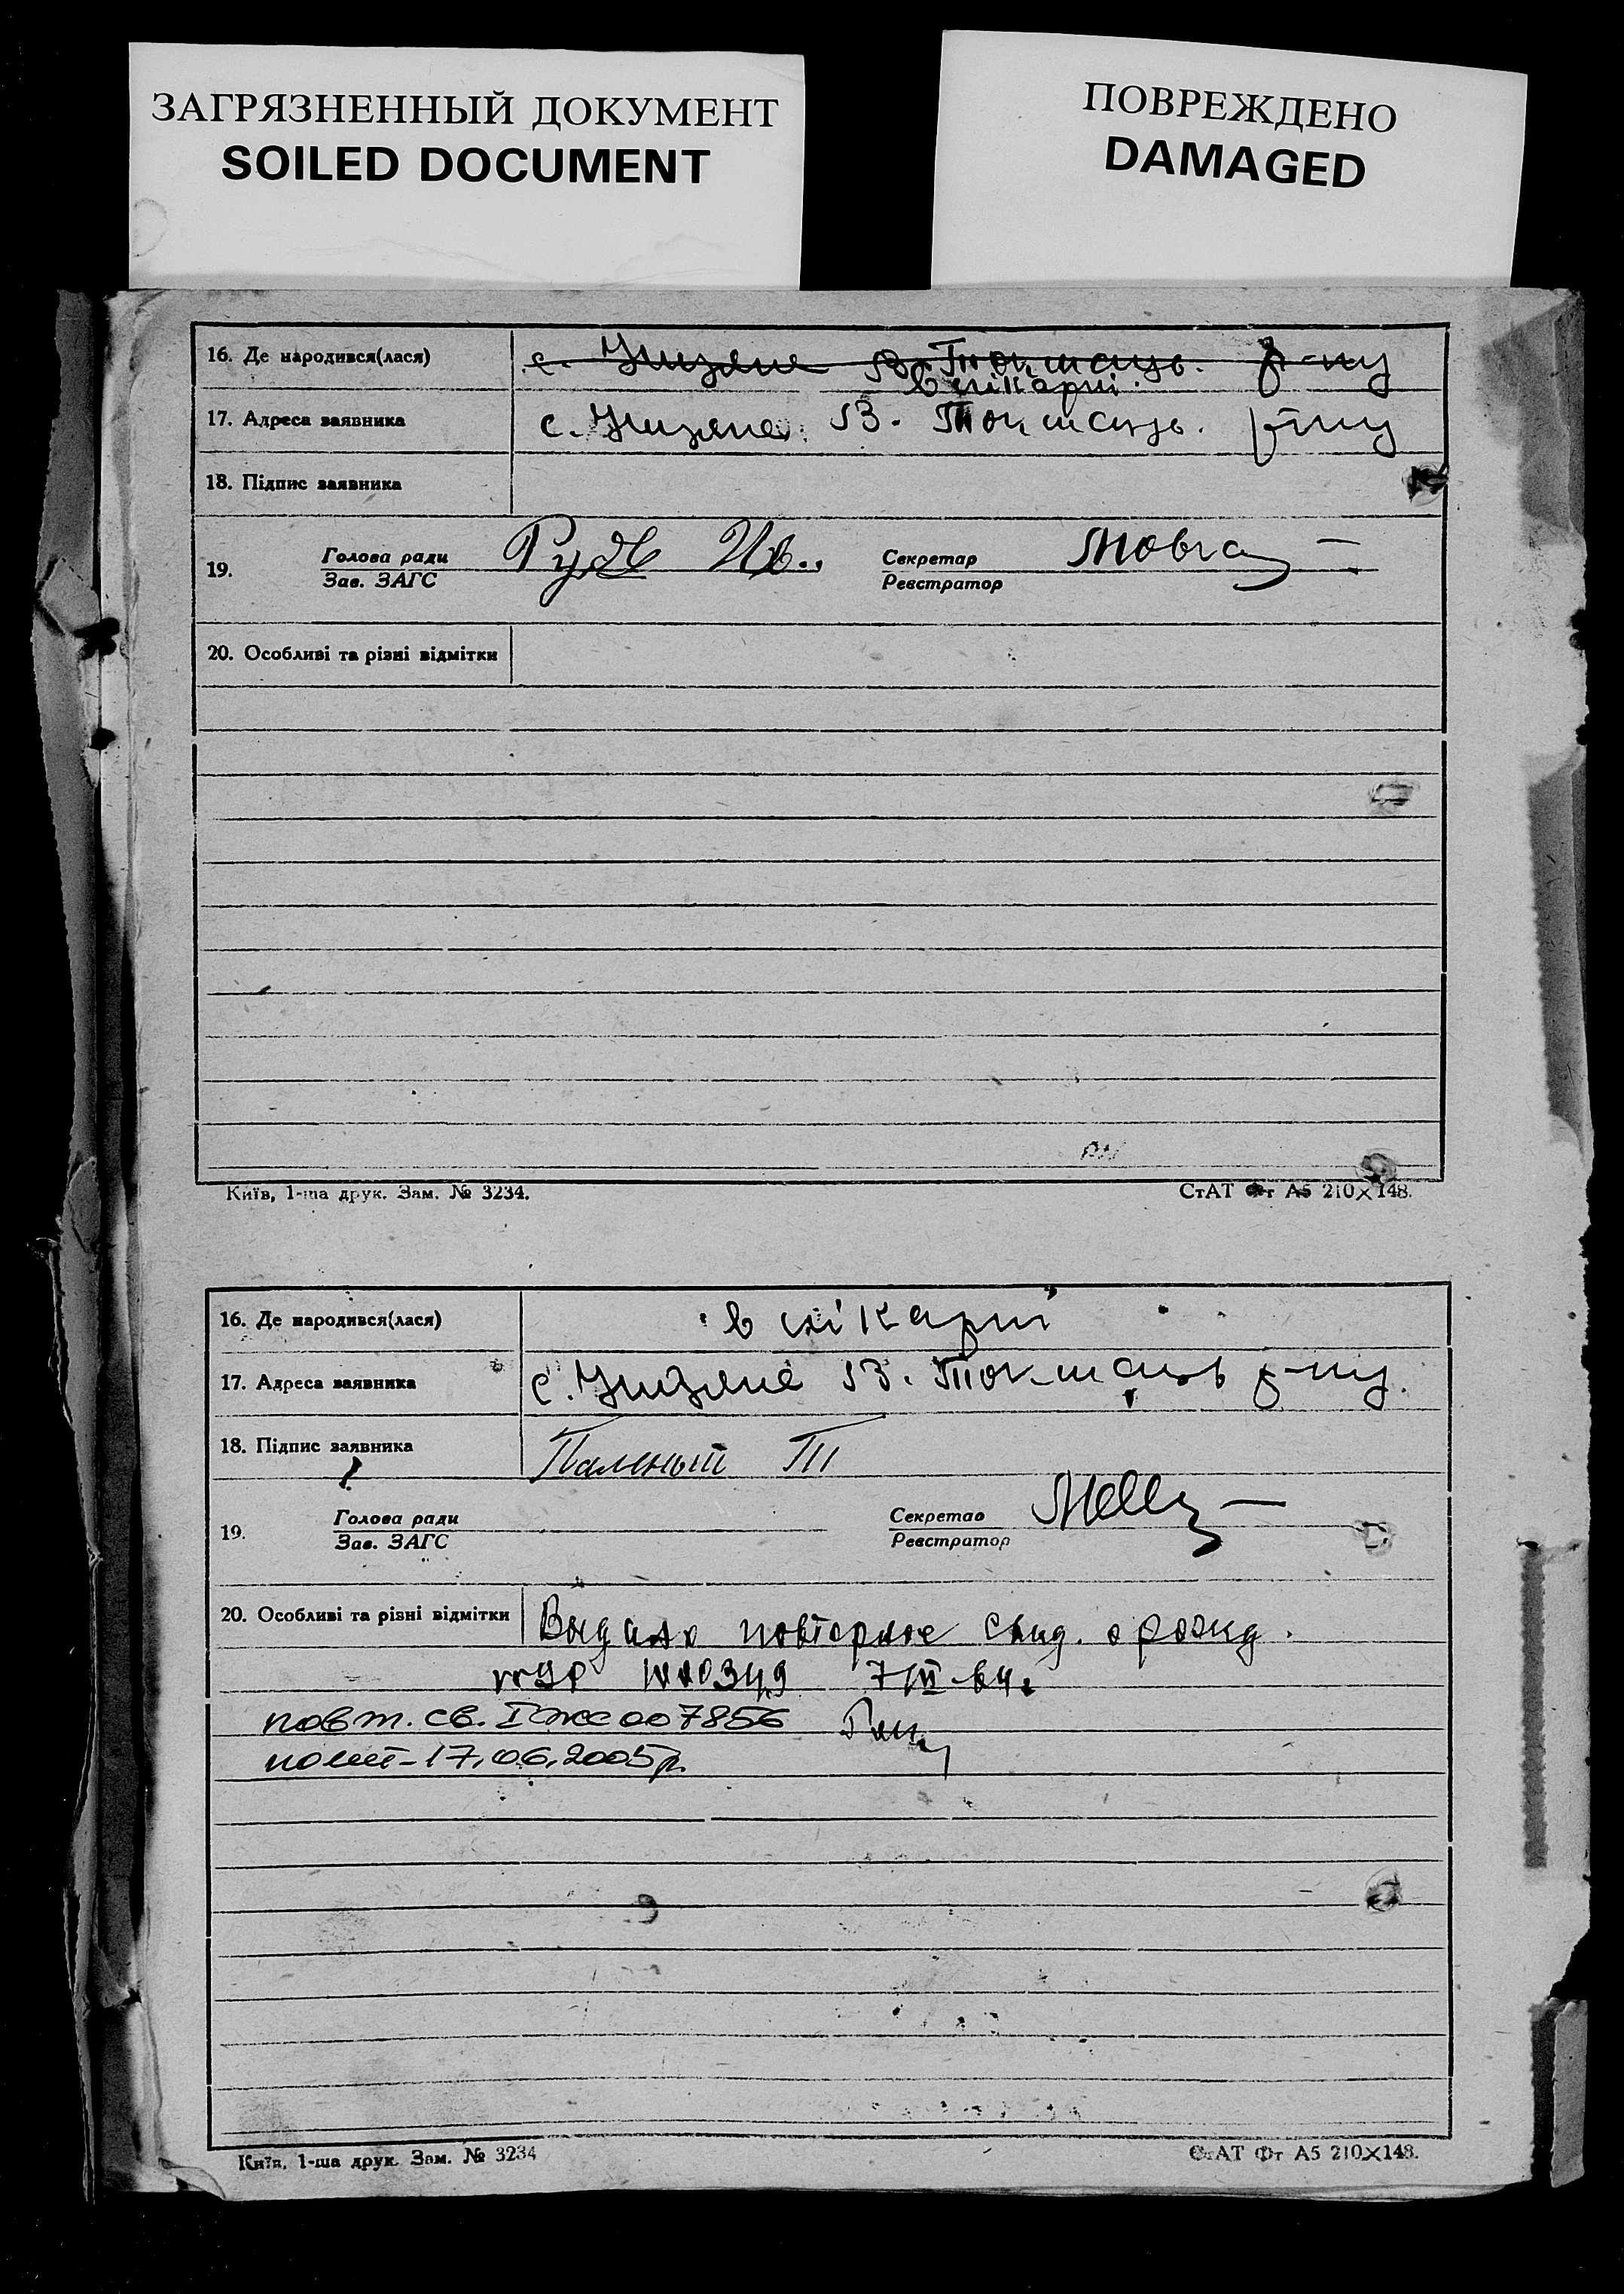 ЗАГРЯЗНЕННЫЙ ДОКУМЕНТ
SOILED DOCUMENT
ПОВРЕЖДЕНО
DAMAGED
16. Де народився(лася) с. В. Токмаць. р-ну
в лікарні.
17. Адреса заявника с. В. Токмаць. р-ну
18. Підпис заявника
19. Голова ради
Зав. ЗАГС
Секретар
Реєстратор
20. Особливі та різні відмітки
Київ, 1-ша друк. Зам. № 3234.
СтАТ Фт А5 210×148.
16. Де народився(лася) в лікарні
17. Адреса заявника с. В. Токмаць р-ну.
18. Підпис заявника
19. Голова ради
Зав. ЗАГС
Секретар
Реєстратор
20. Особливі та різні відмітки Выдано повторное свид. о рожд.
7/III-64г
повт. св. I-жс 007856
17.06.2005р.
Київ, 1-ша друк. Зам. № 3234
СтАТ Фт А5 210×148.